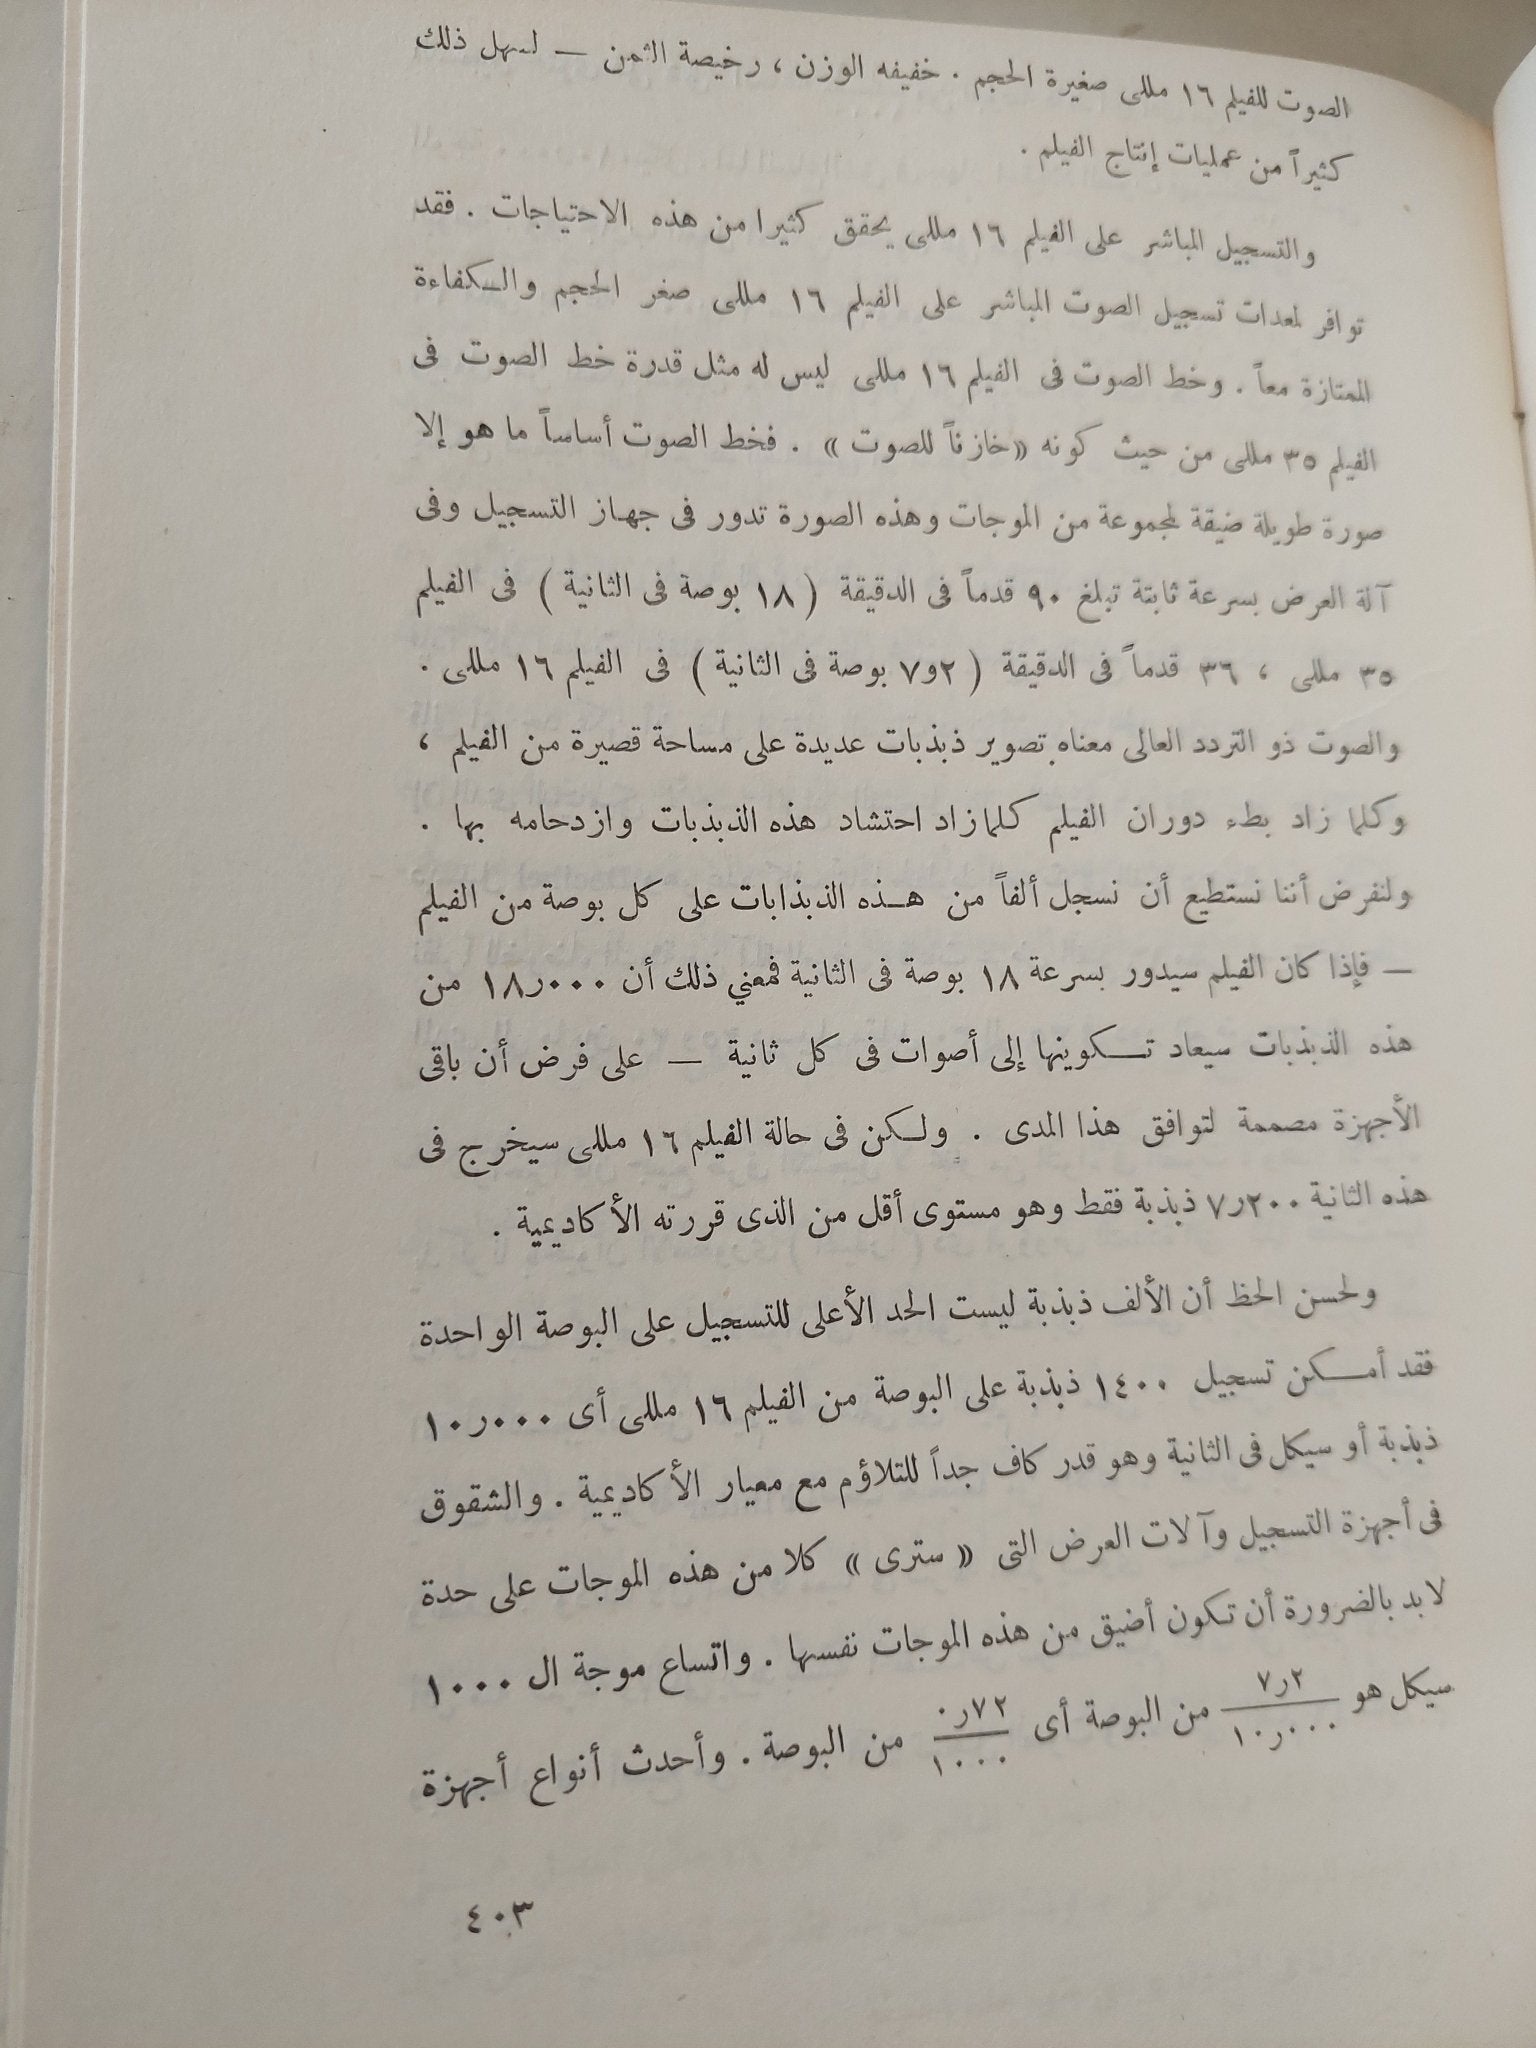 الصوت للفيلم ١٦ مللى صغيرة الحجم . خفيفه الوزن ، رخيصة الثمن — لسهل ذلك
كثيراً من عمليات إنتاج الفيلم .
والتسجيل المباشر على الفيلم ١٦ مللى يحقق كثيرا من هذه الاحتياجات . فقد
توافر لمعدات تسجيل الصوت المباشر على الفيلم ١٦ مللى صغر الحجم والكفاءة
الممتازة معاً . وخط الصوت فى الفيلم ١٦ مللى ليس له مثل قدرة خط الصوت فى
الفيلم ٣٥ مللى من حيث كونه «خازناً للصوت» . فخط الصوت أساساً ما هو إلا
صورة طويلة ضيقة لمجموعة من الموجات وهذه الصورة تدور فى جهاز التسجيل وفى
آلة العرض بسرعة ثابتة تبلغ ٩٠ قدماً فى الدقيقة ( ١٨ بوصة فى الثانية ) فى الفيلم
٣٥ مللى ، ٣٦ قدماً فى الدقيقة ( ٢و٧ بوصة فى الثانية ) فى الفيلم ١٦ مللى .
والصوت ذو التردد العالى معناه تصوير ذبذبات عديدة على مساحة قصيرة من الفيلم ،
وكلما زاد بطء دوران الفيلم كلما زاد احتشاد هذه الذبذبات وازدحامه بها .
ولنفرض أننا نستطيع أن نسجل ألفاً من هذه الذبذابات على كل بوصة من الفيلم
— فإذا كان الفيلم سيدور بسرعة ١٨ بوصة فى الثانية فمعني ذلك أن ٠٠٠ر١٨ من
هذه الذبذبات سيعاد تكوينها إلى أصوات فى كل ثانية — على فرض أن باقى
الأجهزة مصممة لتوافق هذا المدى . ولكن فى حالة الفيلم ١٦ مللى سيخرج فى
هذه الثانية ٢٠٠ر٧ ذبذبة فقط وهو مستوى أقل من الذى قررته الأكاديمية .
ولحسن الحظ أن الألف ذبذبة ليست الحد الأعلى للتسجيل على البوصة الواحدة
فقد أمكن تسجيل ١٤٠٠ ذبذبة على البوصة من الفيلم ١٦ مللى أى ٠٠٠ر١٠
ذبذبة أو سيكل فى الثانية وهو قدر كاف جداً للتلاؤم مع معيار الأكاديمية . والشقوق
فى أجهزة التسجيل وآلات العرض التى « سترى » كلا من هذه الموجات على حدة
لابد بالضرورة أن تكون أضيق من هذه الموجات نفسها . واتساع موجة ال ١٠٠٠
سيكل هو ٢ر٧/٠٠٠ر١٠ من البوصة أى ٧٢ر٠/١٠٠٠ من البوصة . وأحدث أنواع أجهزة
٤٠٣